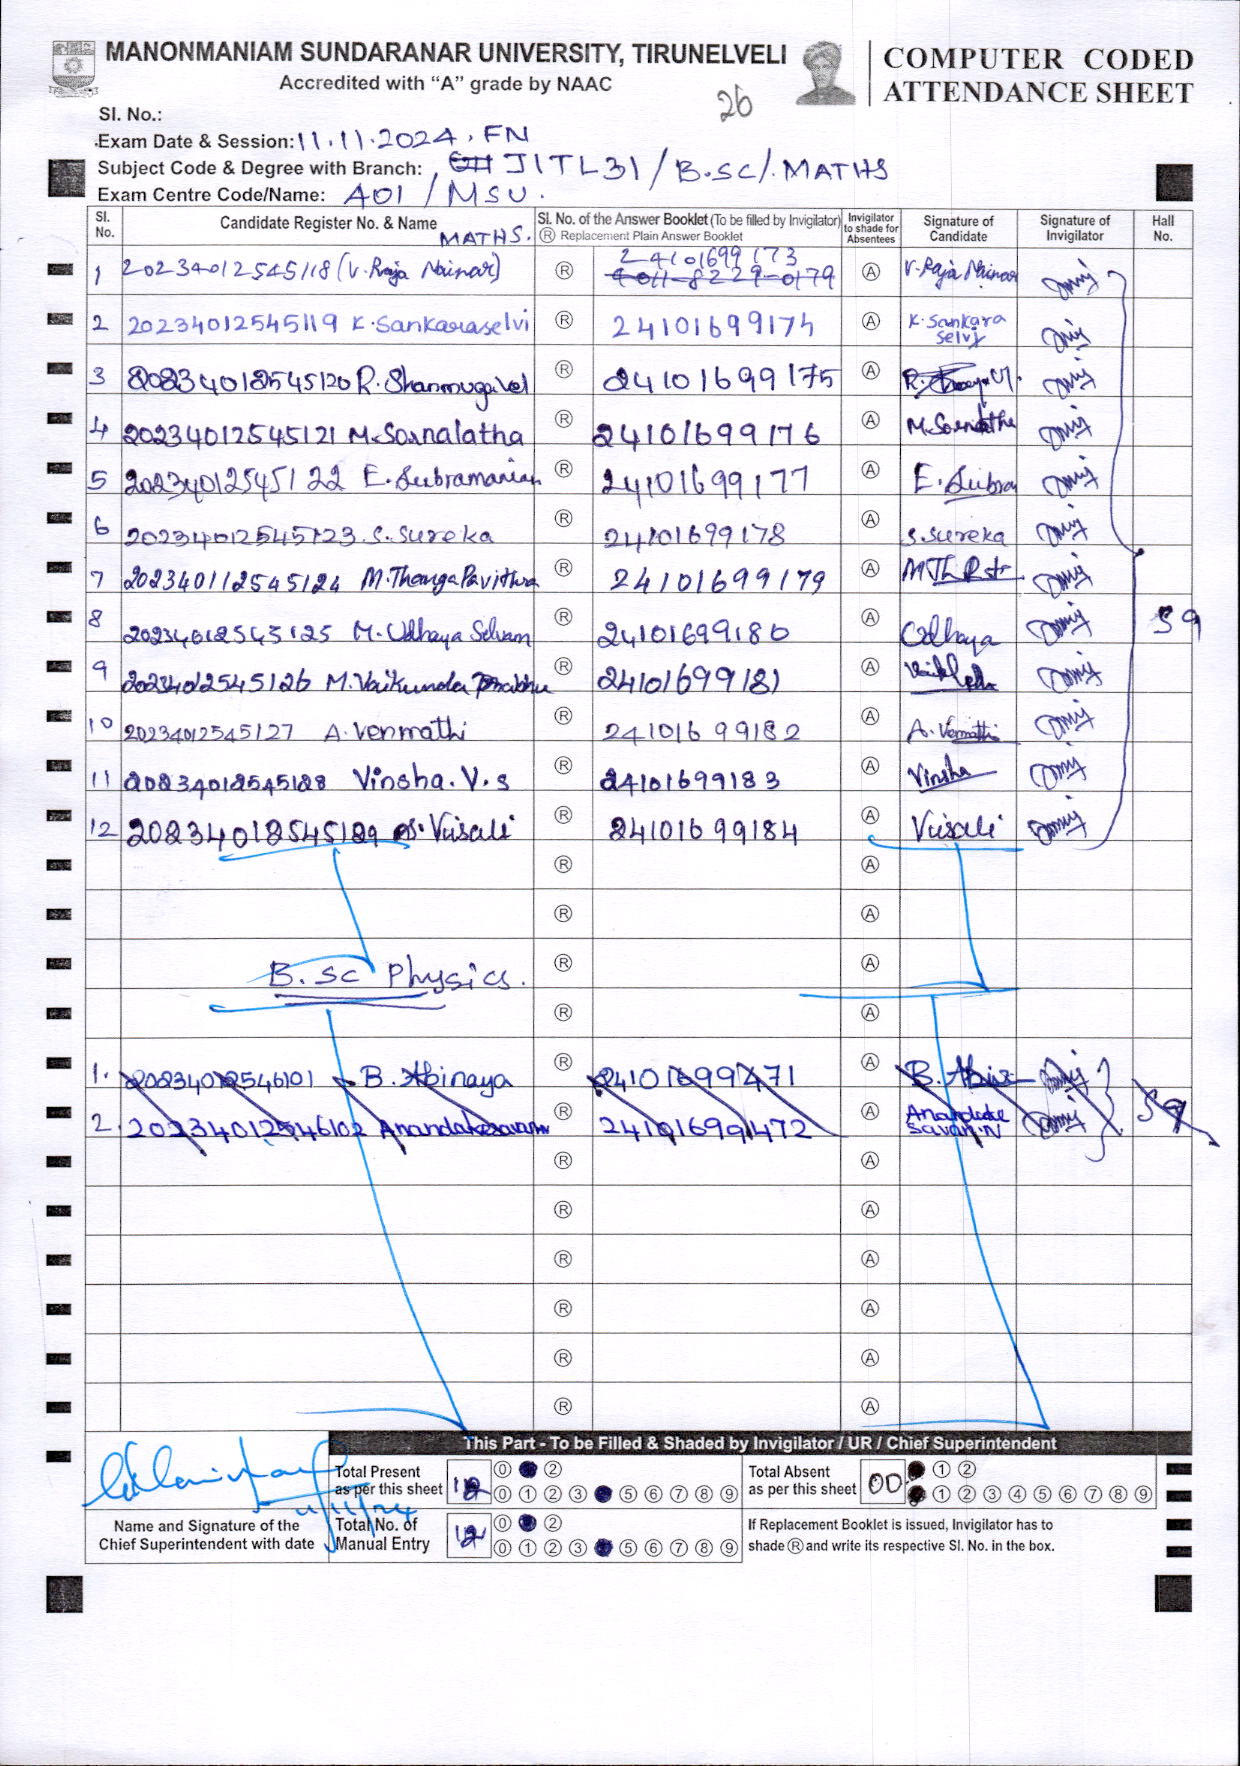 MANONMANIAM SUNDARANAR UNIVERSITY, TIRUNELVELI
Accredited with “A” grade by NAAC
COMPUTER CODED
ATTENDANCE SHEET
26
Sl. No.:
Exam Date & Session: 11.11.2024. FN
Subject Code & Degree with Branch: JITL31 / B.SC/. MATHS
Exam Centre Code/Name: A01 / MSU.
Sl. No. Candidate Register No. & Name MATHS. Sl. No. of the Answer Booklet (To be filled by Invigilator) Ⓡ Replacement Plain Answer Booklet Invigilator to shade for Absentees Signature of Candidate Signature of Invigilator Hall No.
1 20234012545118 (V. Raja Nainar) Ⓡ 24101699173 Ⓐ V. Raja Nainar
2 20234012545119 K. Sankaraselvi Ⓡ 24101699174 Ⓐ K. Sankara Selvi
3 20234012545120 R. Shanmugavel Ⓡ 24101699175 Ⓐ
4 20234012545121 M. Sornalatha Ⓡ 24101699176 Ⓐ M. Sornalatha
5 20234012545122 E. Subramanian Ⓡ 24101699177 Ⓐ E. Subra
6 20234012545123 . S. Sureka Ⓡ 24101699178 Ⓐ S. Sureka
7 202340112545124 M. Thanga Pavithra Ⓡ 24101699179 Ⓐ
8 20234012545125 M. Udhaya Selvam Ⓡ 24101699180 Ⓐ Udhaya 59
9 20234012545126 M. Vaikunda Prabhu Ⓡ 24101699181 Ⓐ
10 20234012545127 A. Venmathi Ⓡ 24101699182 Ⓐ A. Venmathi
11 20234012545128 Vinsha. V. S Ⓡ 24101699183 Ⓐ Vinsha
12 20234012545129 S. Visali Ⓡ 24101699184 Ⓐ Visali
Ⓡ Ⓐ
Ⓡ Ⓐ
B. SC Physics. Ⓡ Ⓐ
Ⓡ Ⓐ
1. 20234012546101 B. Abinaya Ⓡ 24101699471 Ⓐ B. Abi
2. 20234012546102 Anandakesavan Ⓡ 24101699472 Ⓐ Anandake Savan.N 59
Ⓡ Ⓐ
Ⓡ Ⓐ
Ⓡ Ⓐ
Ⓡ Ⓐ
Ⓡ Ⓐ
Ⓡ Ⓐ
This Part - To be Filled & Shaded by Invigilator / UR / Chief Superintendent
11/11/24
Name and Signature of the
Chief Superintendent with date
Total Present as per this sheet 12 0 2
0 1 2 3 5 6 7 8 9
Total Absent as per this sheet 00 1 2
1 2 3 4 5 6 7 8 9
Total No. of Manual Entry 12 0 2
0 1 2 3 5 6 7 8 9
If Replacement Booklet is issued, Invigilator has to
shade Ⓡ and write its respective Sl. No. in the box.